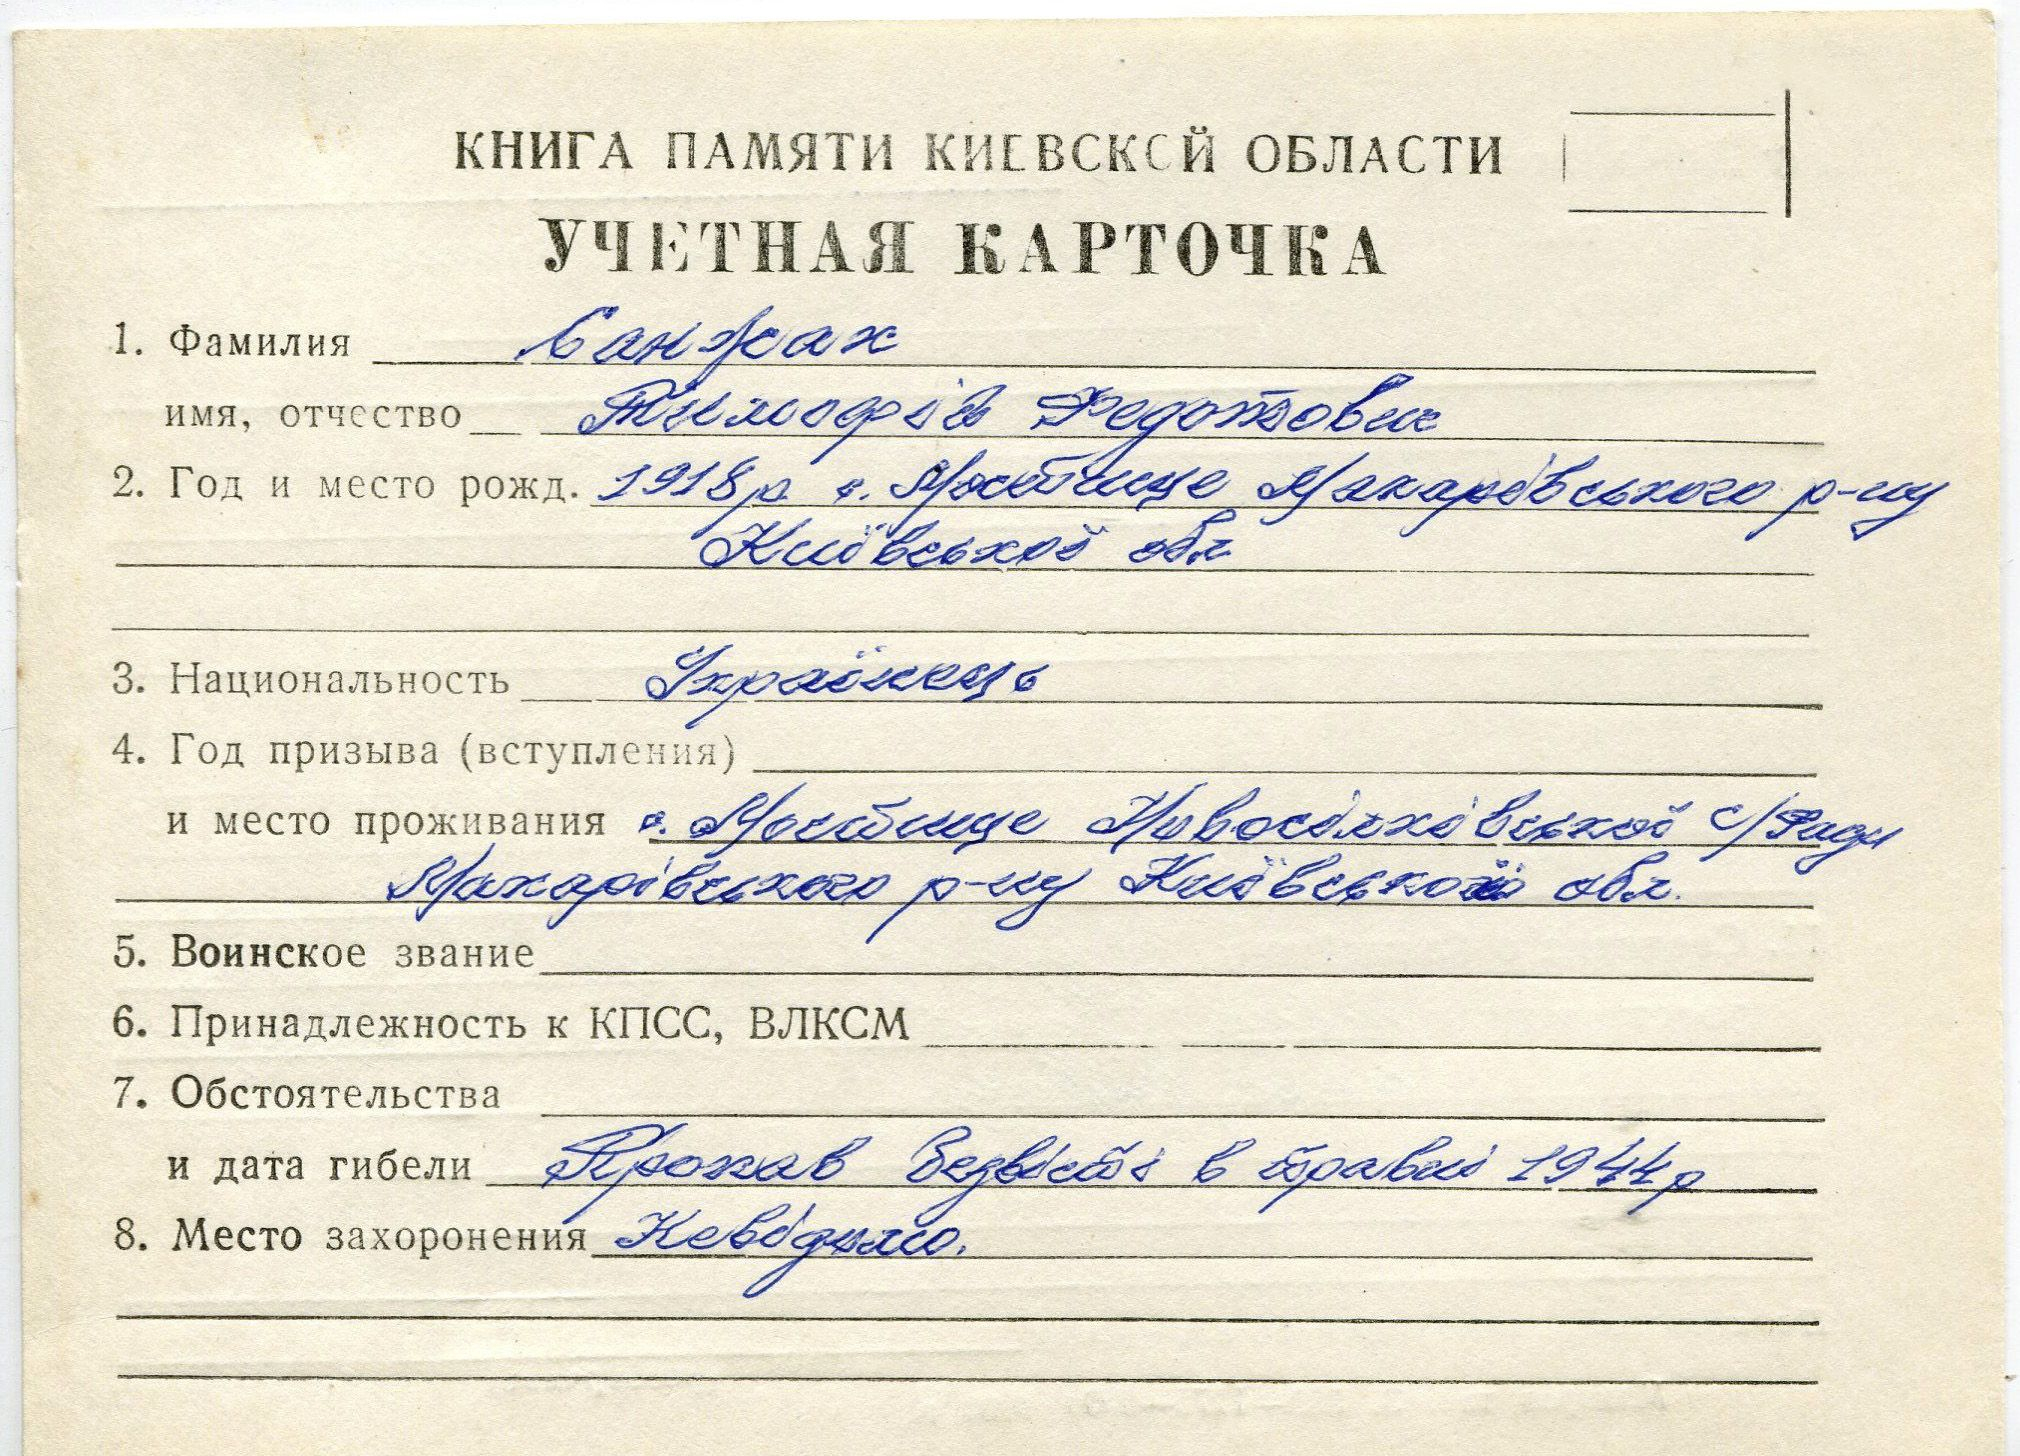 КНИГА ПАМЯТИ КИЕВСКОЙ ОБЛАСТИ
УЧЕТНАЯ КАРТОЧКА
1. Фамилия Санжак
имя, отчество Тимофій Федотович
2. Год и место рожд. 1918р с. Мостище Макарівського р-ну
Київської обл
3. Национальность Українець
4. Год призыва (вступления)
и место проживания с. Мостище Новосілківської с/Ради
Макарівського р-ну Київської обл.
5. Воинское звание
6. Принадлежность к КПСС, ВЛКСМ
7. Обстоятельства
и дата гибели Пропав безвісті в травні 1944р
8. Место захоронения Невідомо.